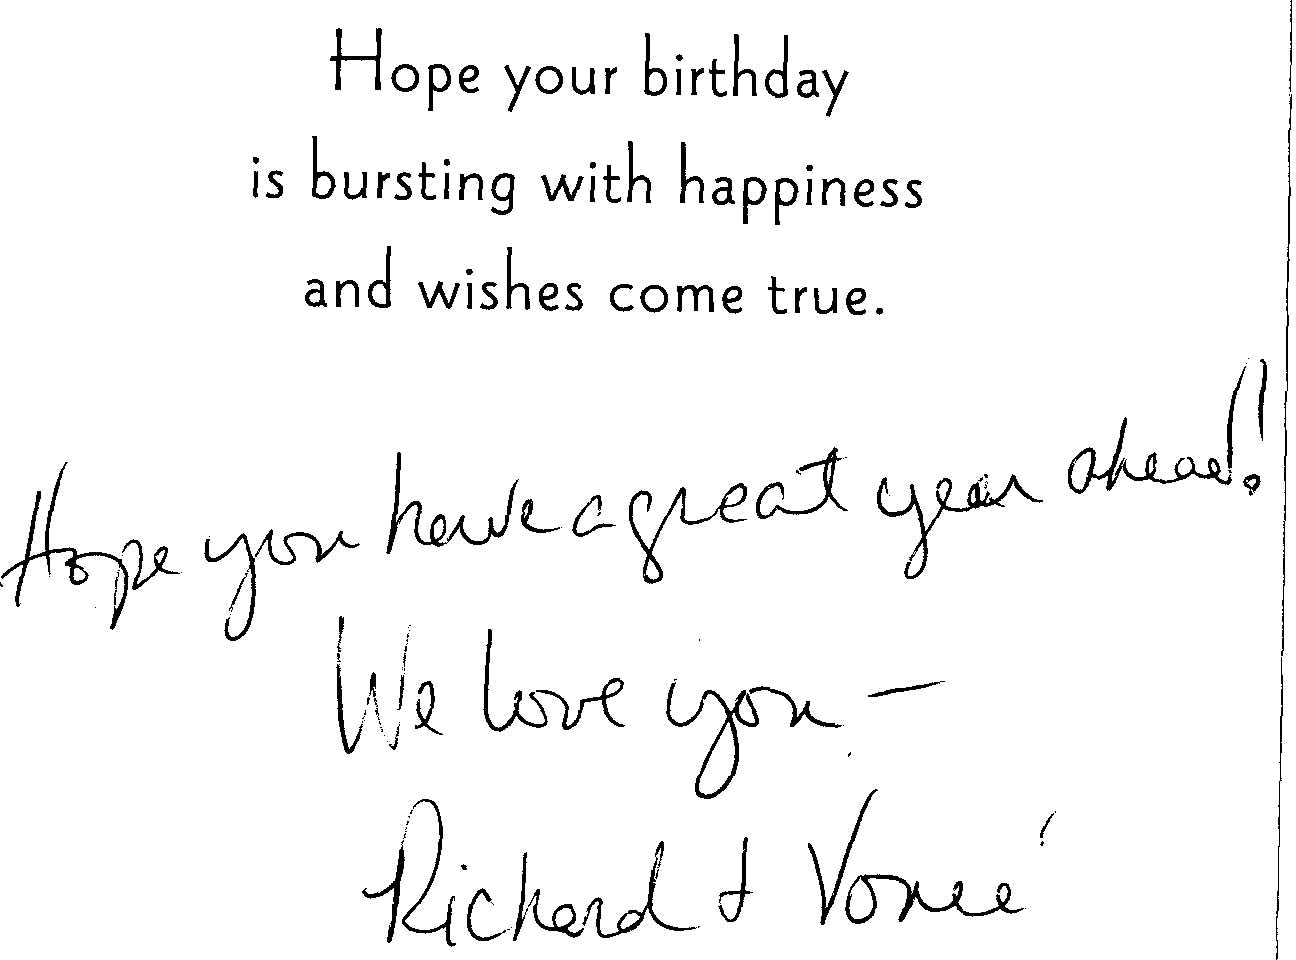 Hope your birthday
is bursting with happiness
and wishes come true.
Hope you have a great year ahead!
We love you —
Richard & Voneé